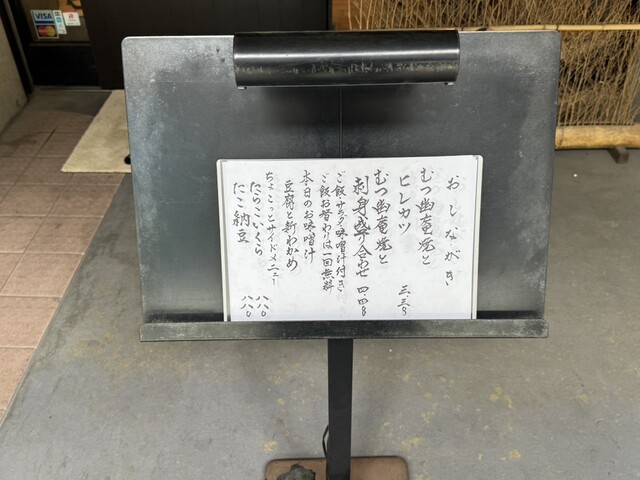 おしながき
むつ幽庵焼と
ヒレカツ 三.三〇
むつ幽庵焼と
刺身盛り合わせ 四.四〇
ご飯サラダ味噌汁付き
ご飯お替わりは一回無料
本日のお味噌汁
豆腐と新わかめ
ちょこっとサイドメニュー
たらこいくら 八八〇
たこ納豆 八八〇
VISA